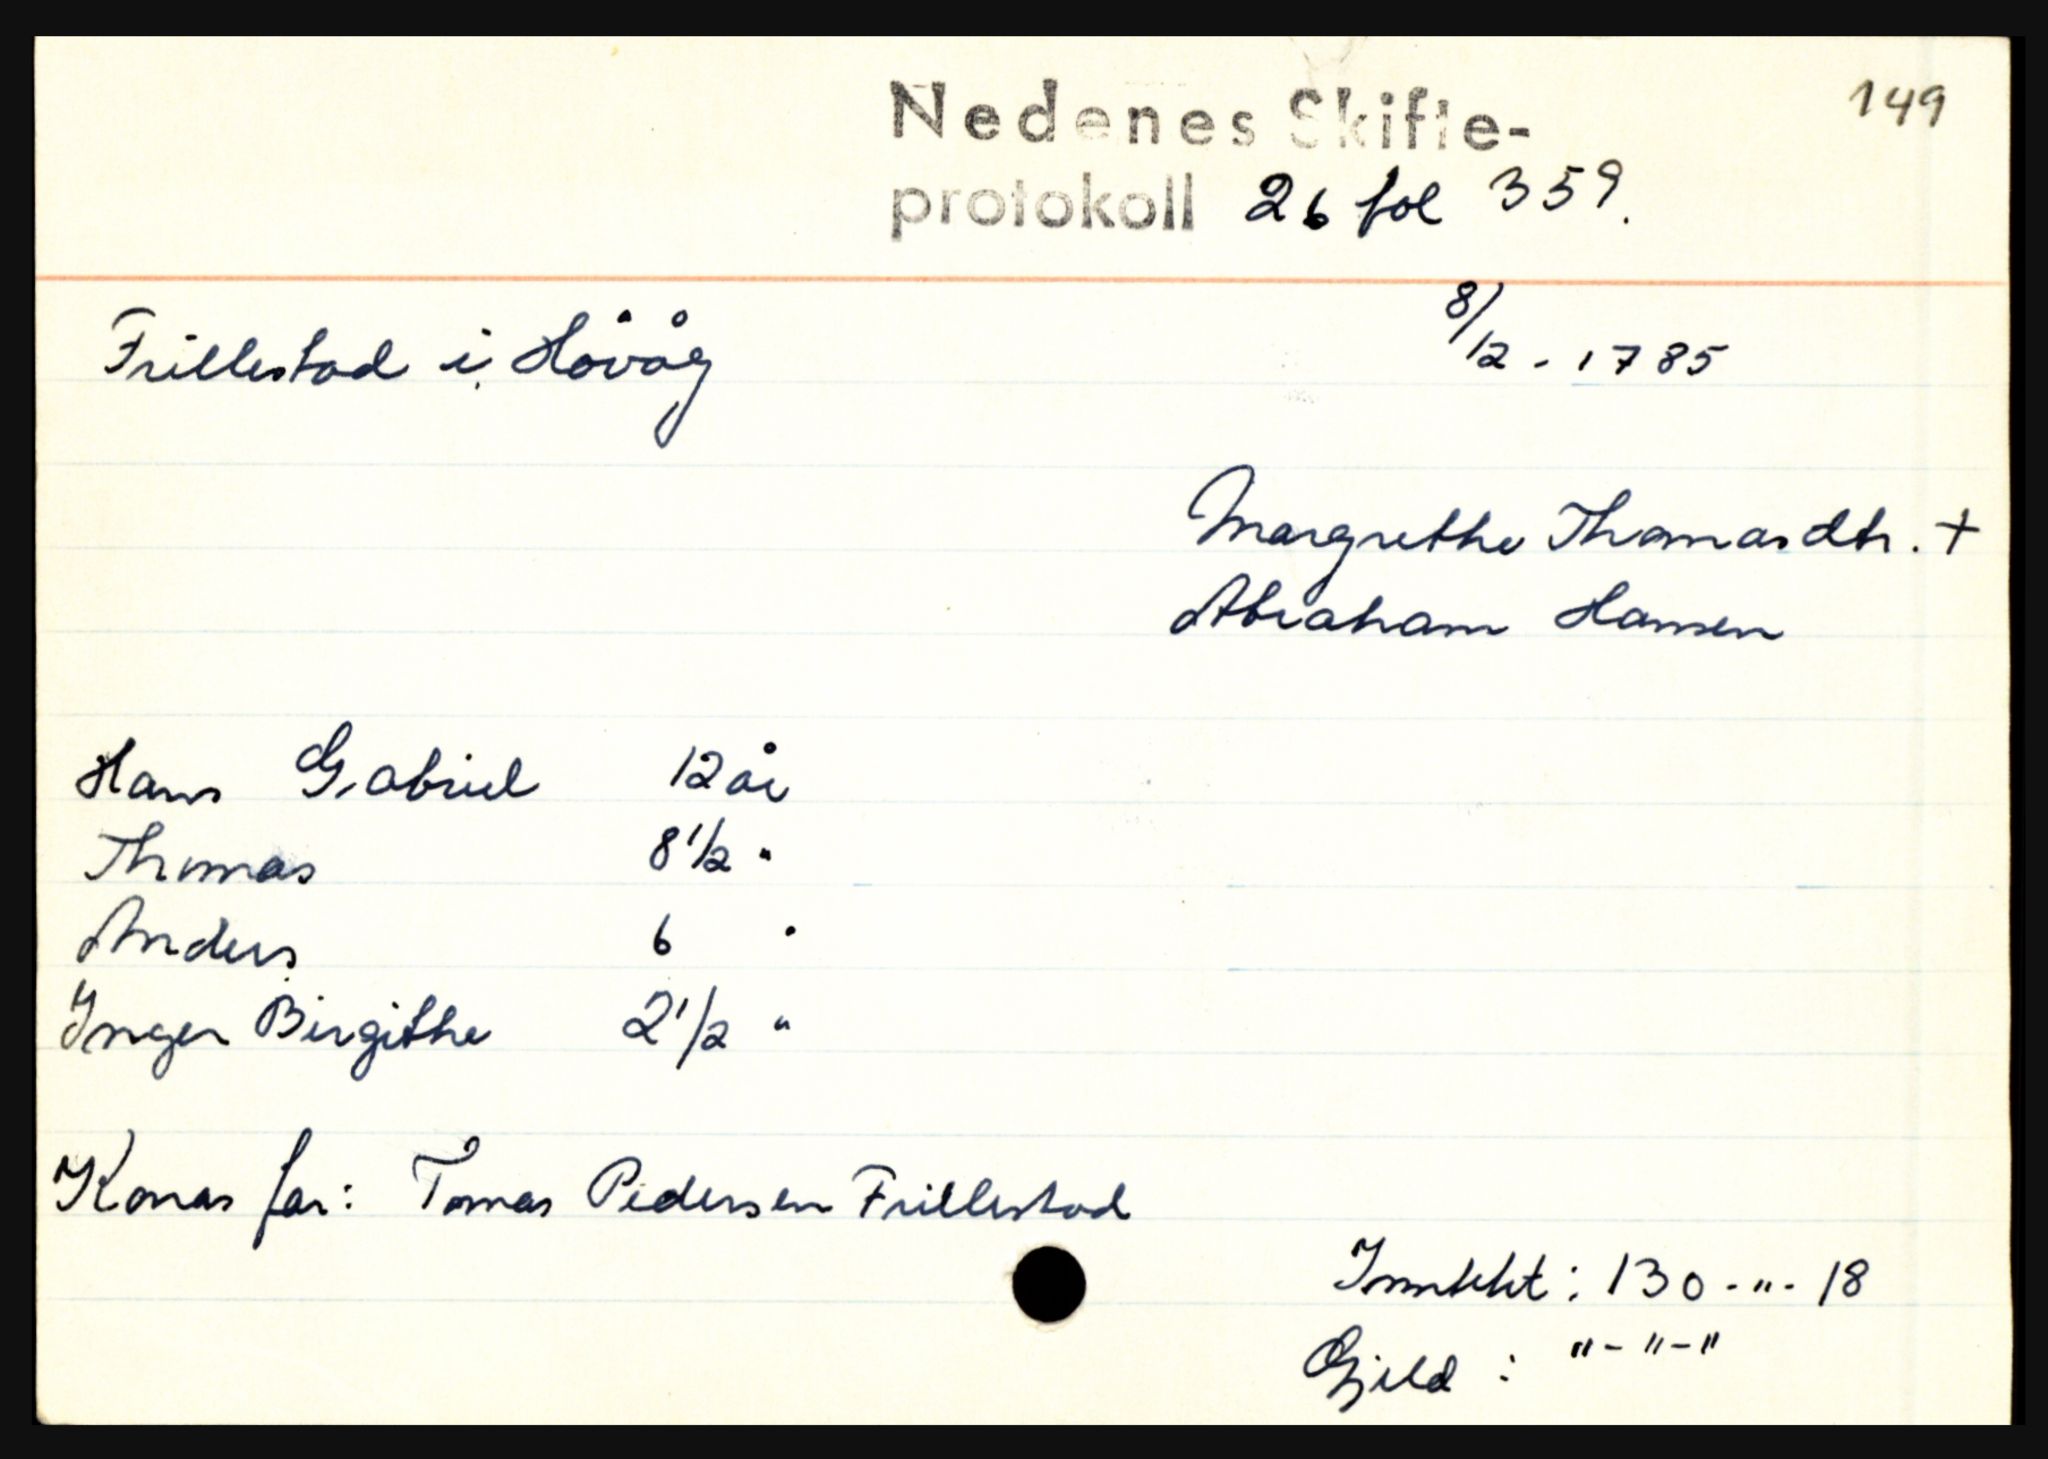 149
Nedenes Skifte-
protokoll 26 fol 359.
Frillestad i Høvåg 8/12 - 1785
Margrethe Thomasdtr. +
Abraham Hansen
Hans Gabriel 12 år
Thomas 8 1/2 "
Anders 6 "
Inger Birgithe 2 1/2 "
Konas far: Tomas Pedersen Frillestad
Inntekt: 130 - " - 18
Gjeld : " - " - "